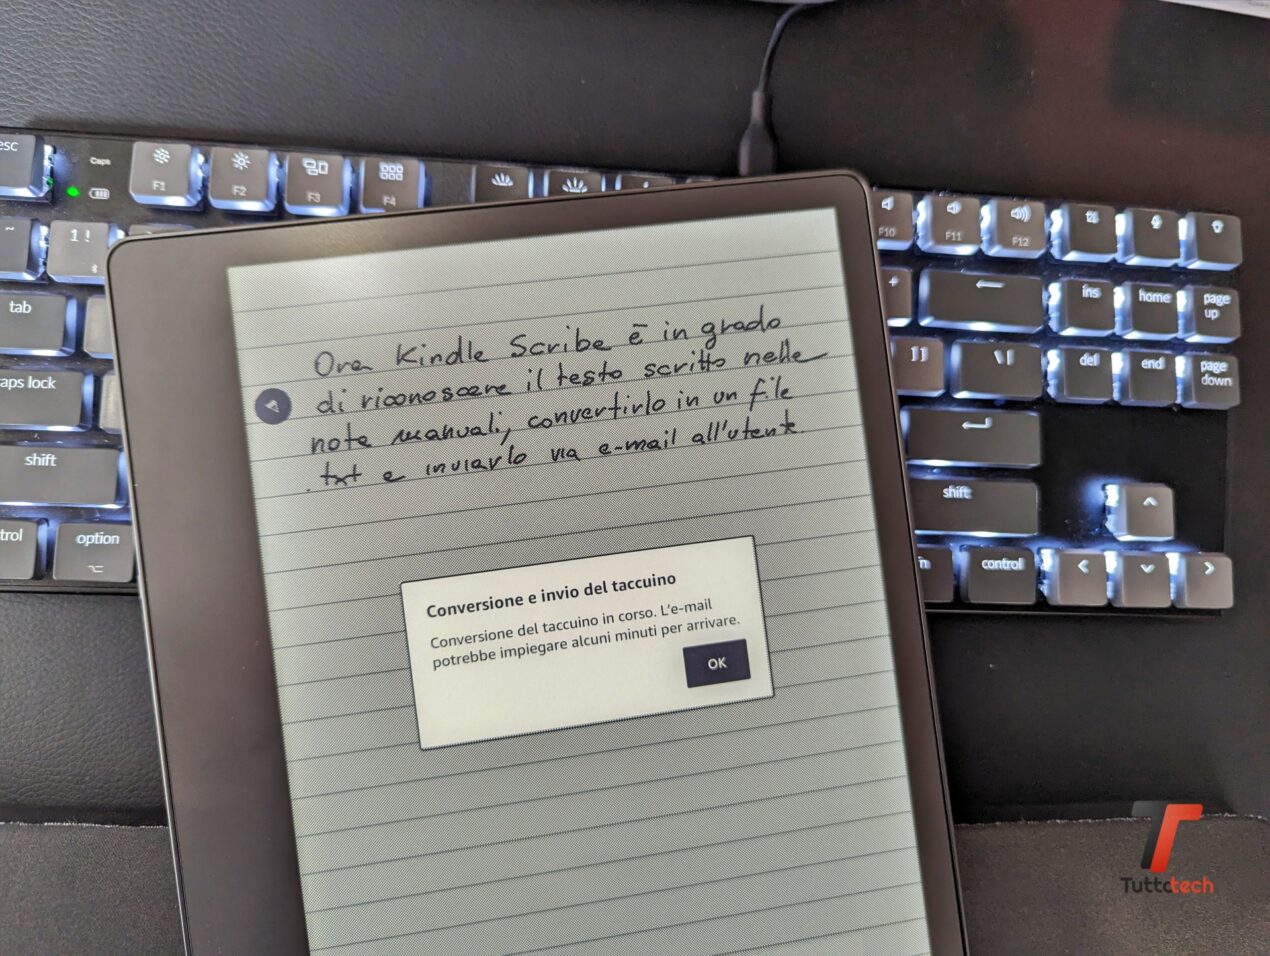 esc
Caps
F1
F2
F3
F4
F10
F11
F12
~
1 !
+
ins
home
page up
tab
] }
\ |
del
end
page down
aps lock
shift
shift
trol
option
control
Ora Kindle Scribe è in grado
di riconoscere il testo scritto nelle
note manuali, convertirlo in un file
.txt e inviarlo via e-mail all'utente
Conversione e invio del taccuino
Conversione del taccuino in corso. L'e-mail
potrebbe impiegare alcuni minuti per arrivare.
OK
Tuttotech